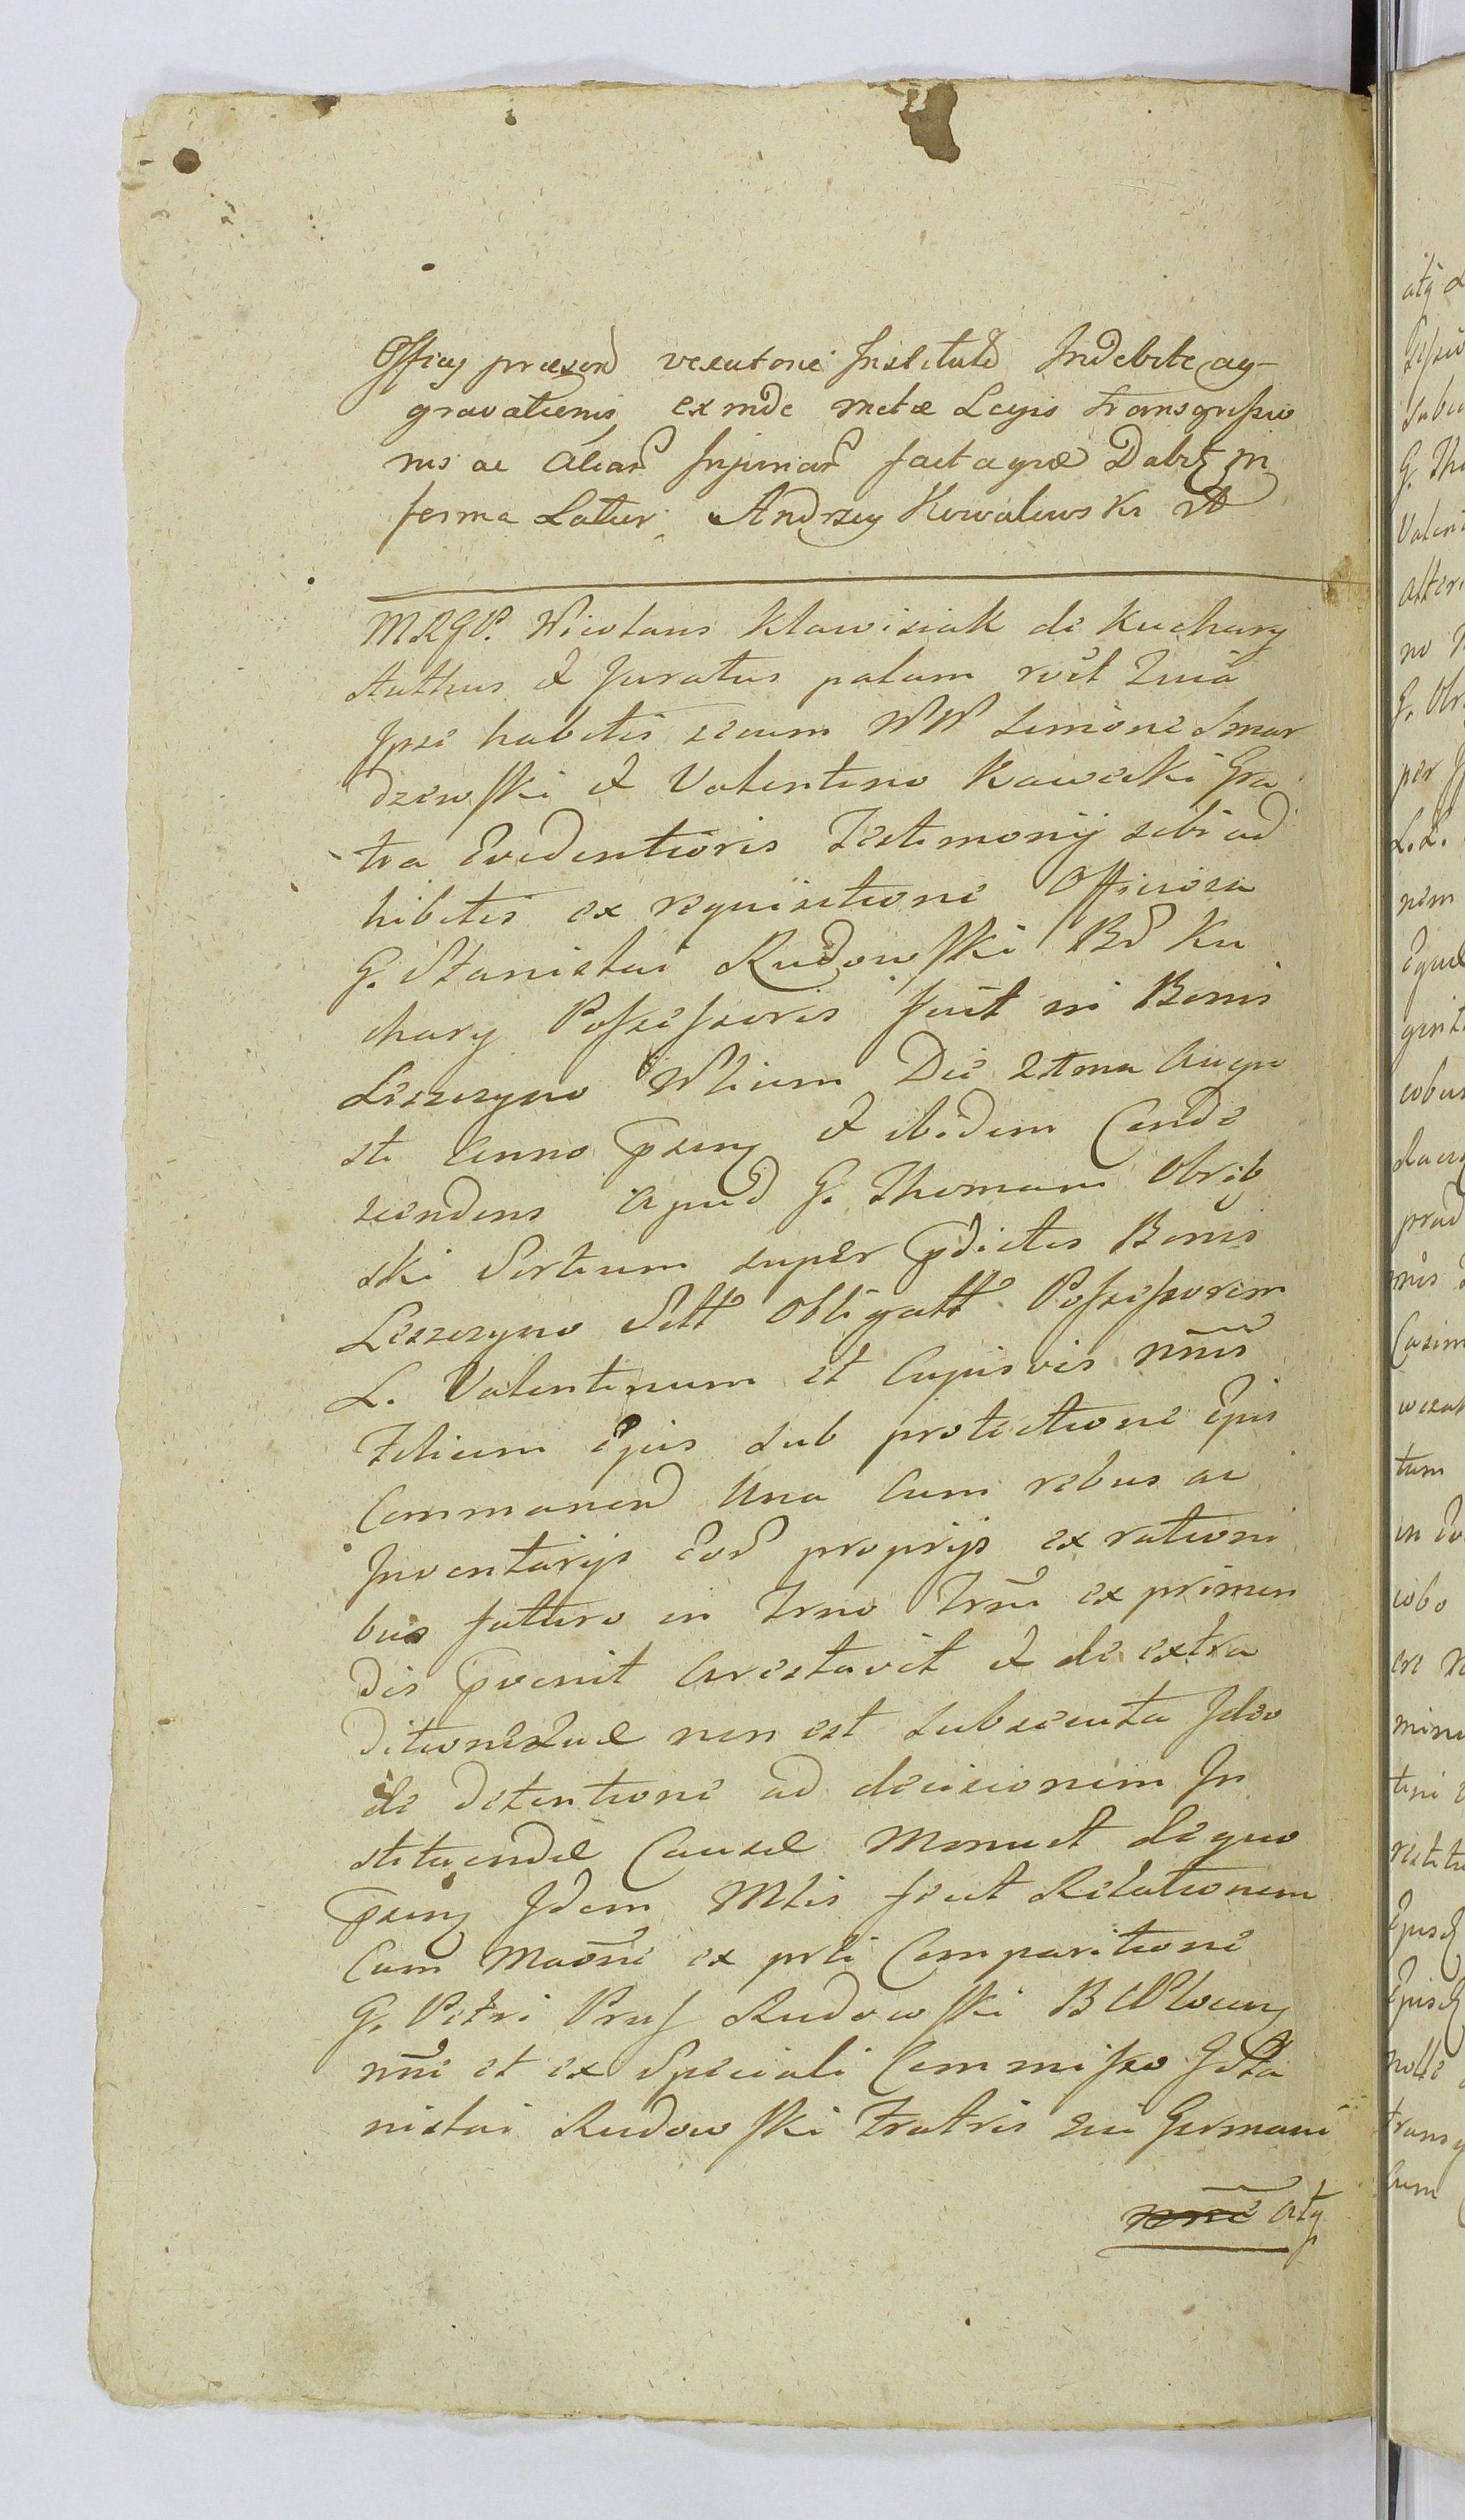 Officÿ præsend vexatione Institutd Indebite ag-
gravationis exinde metæ Legis transgressio
nis ac aliar Injuriar factaque Dabitq in
forma Latior Andrzey Kowalewski
MRGP. Nicolaus Klawisiak de Kuchary
Authus et Juratus palam
Ipse habitis secum NN Simone Smar
dzewski et Valentino Kawecki Gra
tia Evidentioris Testimonÿ sibi ad
hibitis ex requisitione Officiosa
G. Stanislai Rudowski Bd Ku
chary Possessoris fuit in Bonis
Leszczyno Die 21ma Augu
sti Anno et ibidem Conde
scendens apud G. Thomam Obręb
ski Sortium super pdictis Bonis
Leszczyno Sett Obligatt Possessorem
L. Valentinum et Cujusvis nnis
Filium Ejus sub protectione Ejus
Commanend Una Cum rebus ac
Inventarÿs Eord proprÿs ex rationi
bus futuro in Trno Trni exprimen
dis pvenit Arestavit et de extra
ditione Quæ non est subsecuta Ideo
de detentione ad decisionem In
stituendæ Causæ Monuit de quo
Idem Mlis fecit Relationem
Cum Maone ex prli Comparitione
G. Petri Prus Rudowski B
nnē et ex Speciali Commisso G Sta
nislai Rudowski Fratris sui Germani
atq